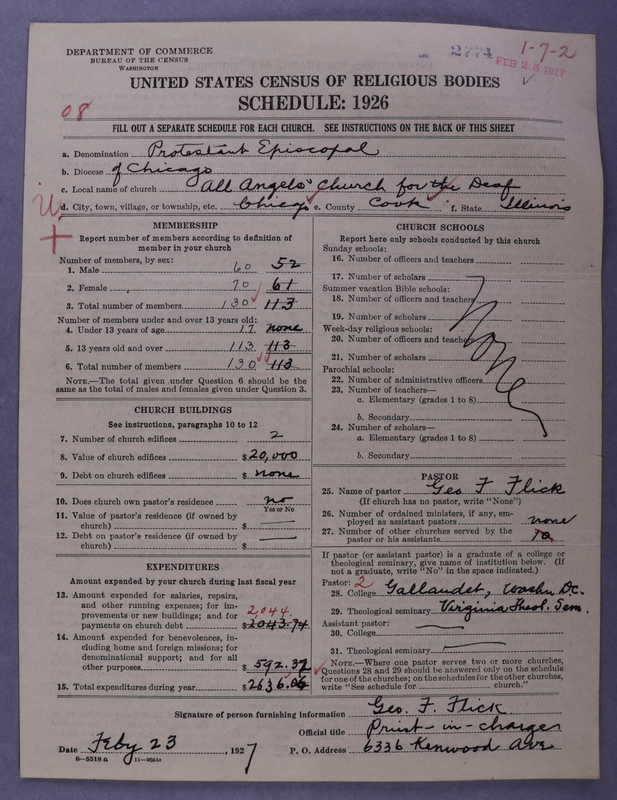 DEPARTMENT OF COMMERCE
BUREAU OF THE CENSUS
WASHINGTON
2774
1-7-2
FEB 25 1927
UNITED STATES CENSUS OF RELIGIOUS BODIES
SCHEDULE: 1926
08
FILL OUT A SEPARATE SCHEDULE FOR EACH CHURCH. SEE INSTRUCTIONS ON THE BACK OF THIS SHEET
a. Denomination Protestant Episcopal
b. Diocese of Chicago
c. Local name of church All Angels' Church for the Deaf
d. City, town, village, or township, etc. Chicago e. County Cook f. State Illinois
MEMBERSHIP
Report number of members according to definition of
member in your church
Number of members, by sex:
1. Male 60 52
2. Female 70 61
3. Total number of members 130 113
Number of members under and over 13 years old:
4. Under 13 years of age 17 none
5. 13 years old and over 113 113
6. Total number of members 130 113
NOTE.—The total given under Question 6 should be
same as the total of males and females given under Question 3.
CHURCH BUILDINGS
See instructions, paragraphs 10 to 12
7. Number of church edifices 2
8. Value of church edifices $20,000
9. Debt on church edifices $ none
10. Does church own pastor's residence no
Yes or No
11. Value of pastor's residence (if owned by
church) $
12. Debt on pastor's residence (if owned by
church) $
EXPENDITURES
Amount expended by your church during last fiscal year
13. Amount expended for salaries, repairs,
and other running expenses; for im-
provements or new buildings; and for
payments on church debt $2043.74
2044.
14. Amount expended for benevolences, in-
cluding home and foreign missions; for
denominational support; and for all
other purposes $592.32
15. Total expenditures during year $2636.06
CHURCH SCHOOLS
Report here only schools conducted by this church
Sunday schools:
16. Number of officers and teachers
17. Number of scholars
Summer vacation Bible schools:
18. Number of officers and teachers
19. Number of scholars
Week-day religious schools:
20. Number of officers and teachers
21. Number of scholars
Parochial schools:
22. Number of administrative officers
23. Number of teachers—
a. Elementary (grades 1 to 8)
b. Secondary
24. Number of scholars—
a. Elementary (grades 1 to 8)
b. Secondary
None
PASTOR
25. Name of pastor Geo F Flick
(If church has no pastor, write "None")
26. Number of ordained ministers, if any, em-
ployed as assistant pastors none
27. Number of other churches served by the
pastor or his assistants 10
If pastor (or assistant pastor) is a graduate of a college or
theological seminary, give name of institution below. (If
not a graduate, write "No" in the space indicated.)
Pastor: 2
28. College Gallaudet, Washn D.C.
29. Theological seminary Virginia Theol. Sem.
Assistant pastor:
30. College
31. Theological seminary
NOTE.—Where one pastor serves two or more churches,
Questions 28 and 29 should be answered only on the schedule
for one of the churches; on the schedules for the other churches,
write "See schedule for church."
Signature of person furnishing information Geo. F. Flick
Official title Priest-in-charge
Date Feby 23, 1927 P. O. Address 6336 Kenwood Ave
8—5518 a 11—9664a